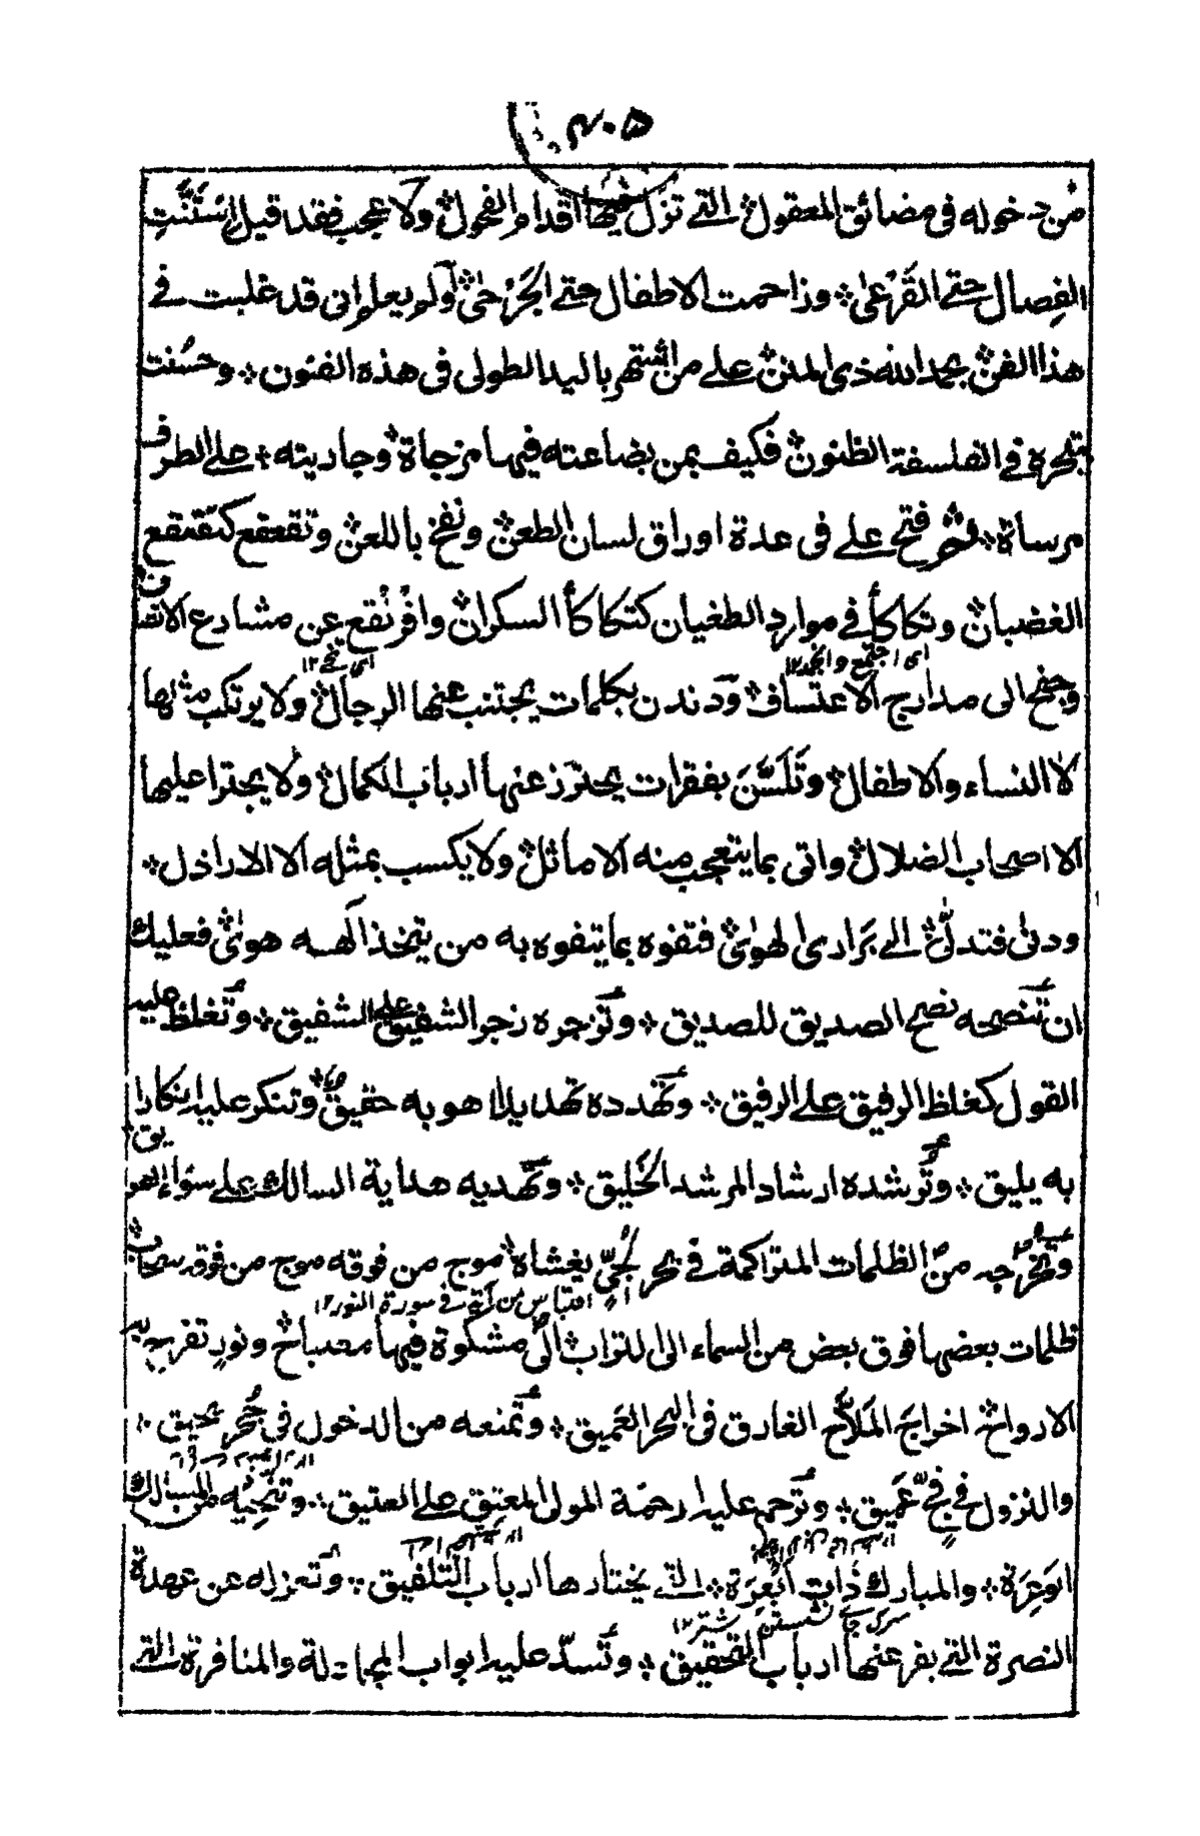 ٤٠٥
من دخوله فى مضائق المعقول التے تزل فيها اقدام الفحول ولا عجب فقد قيل اِستَنَّتِ
الفِصال حتے القَرْعىٰ وزاحمت الاطفال حتے الجَرْحىٰ أولم يعلم انى قد غلبت فے
هذا الفن بحمد الله ذى المنن علے من اشتهر باليد الطولى فى هذه الفنون وحسُنت
تبحره فے الفلسفة الظنون فكيف بمن بضاعته فيها مزجاة وجاريته علے الطرف
مرساة ثم فتح علے فى عدة اوراق لسان الطعن ونفخ باللعن وتقعقع كتقعقع
الغضبان وتكاكأ فے موارد الطغيان كتكاكأ السكران وافْرَنْقع عن مشارع الانصاف
اى اجتمع وانجمد ١٢
اى تنحے ١٢
وجنح الى مدارج الاعتساف ودندن بكلمات يجتنب عنها الرجال ولا يرتكب مثلها
الا النساء والاطفال وتَلَسَّنَ بفقرات يحترز عنها ارباب الكمال ولا يجترا عليها
الا اصحاب الضلال واتى بما يتعجب منه الاماثل ولا يكسب بمثله الا الاراذل
ودنى فتدلّٰى الے بَرارى الهوٰى فتفوه بما يتفوه به من يتخذ الٰهه هوٰى فعليك
ان تنصحه نصح الصديق للصديق وتزجره زجر الشفيق علے الشفيق وتُغلظ عليه
القول كغلظ الرفيق علے الرفيق وتهدده تهديدا هو به حقيق وتنكر عليه انكارا
به يليق وتُرشده ارشاد المرشد الخَليق وتهديه هداية السالك علے سَواء الطريق
وتخرجه من الظلمات المتراكمة فے بحر لُجّى يغشاه موج من فوقه موج من فوقه سحاب
اقتباس من آية فے سورة النور ١٢
ظلمات بعضها فوق بعض من السماء الى التراب الى مشكوة فيها مصباح ونور تفريح به
الارواح اخراجَ المَلَّاح الغارق فى البحر العَميق وتمنعه من الدخول فى جُحر سحيق
والنزول فے فجّ عَميق وترحم عليه رحمة المولى المعتِق علے العتيق وتنجّيه من المسالك
الوَعِرَة والمبارك ذات البَعرَة التے يختارها ارباب التلفيق وتعزله عن عهدة
جاے نشستن شتر ١٢
النصرة التے يفر عنها ارباب التحقيق وتَسدّ عليه ابواب المجادلة والمنافرة التے